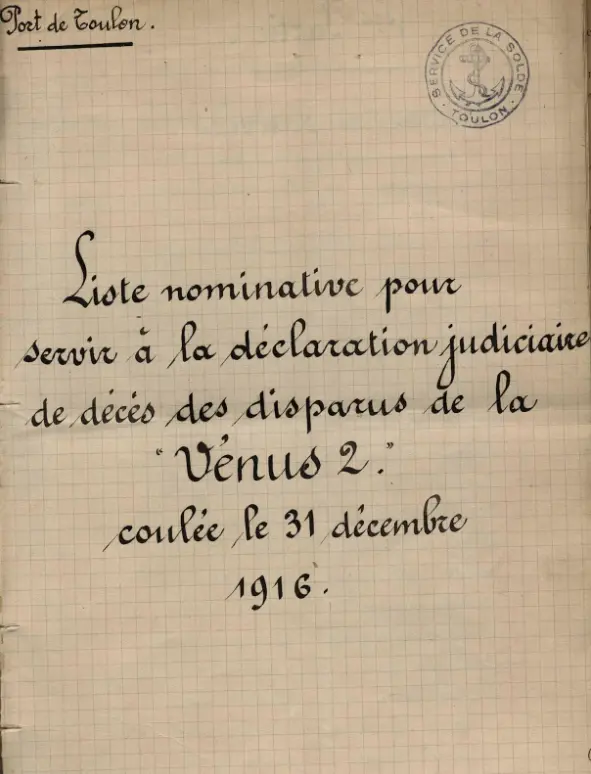 Port de Toulon.
SERVICE DE LA SOLDE
TOULON
Liste nominative pour
servir à la déclaration judiciaire
de décès des disparus de la
"Vénus 2."
coulée le 31 décembre
1916.